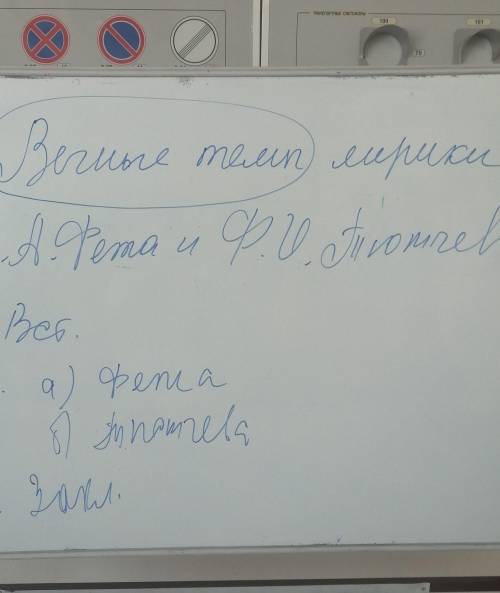 100
101
70
Вечные темы лирики
А. Фета и Ф. И. Тютчев
Вст.
а) Фета
б) Тютчева
Закл.